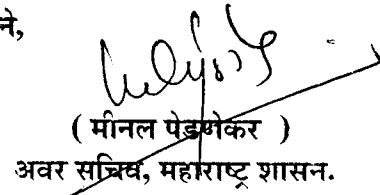 ने,
( मीनल पेडणेकर )
अवर सचिव, महाराष्ट्र शासन.